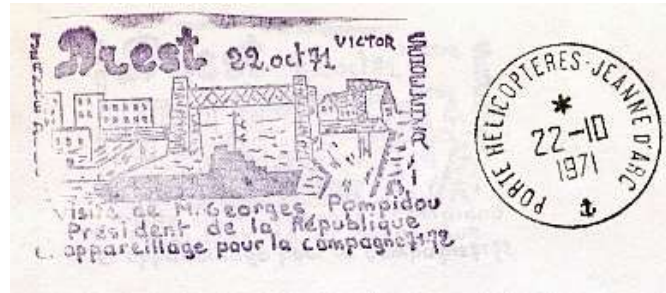 Brest 22.oct 71 VICTOR
Visite de M. Georges Pompidou
Président de la République
appareillage pour la campagne 71-72
PORTE HELICOPTERES-JEANNE D'ARC
22-10
1971